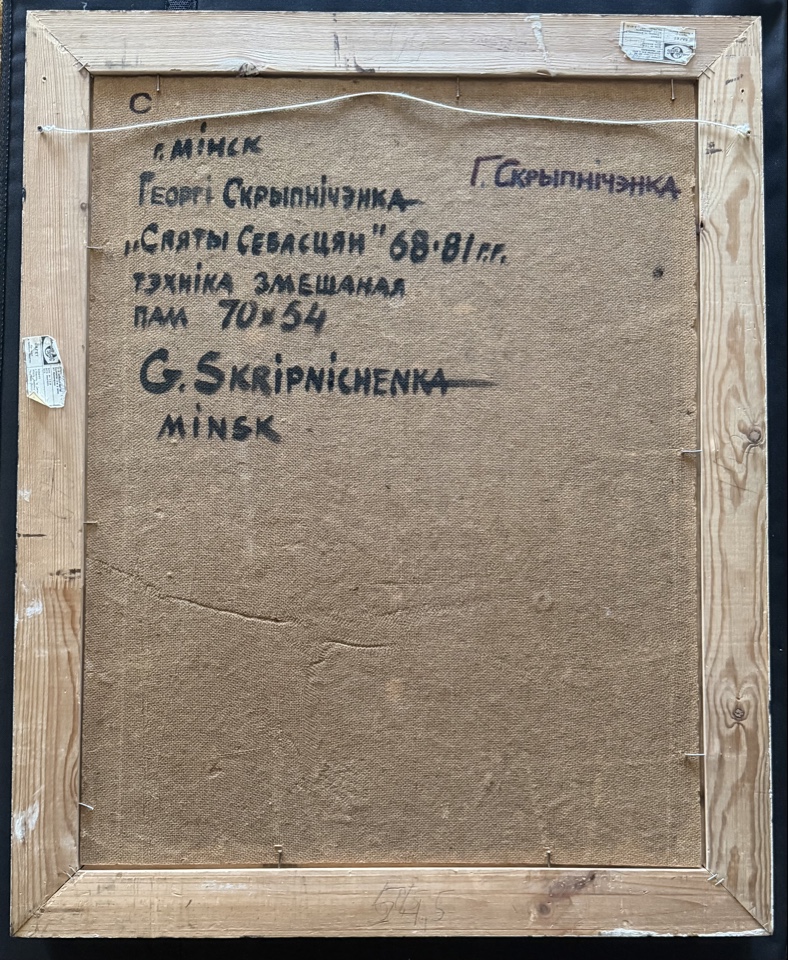 С
г. Мінск
Георгі Скрыпнічэнка
Г. Скрыпнічэнка
„Святы Себасцян" 68·81 г.г.
тэхніка змешаная
пам 70×54
G. Skripnichenka
Minsk
54,5